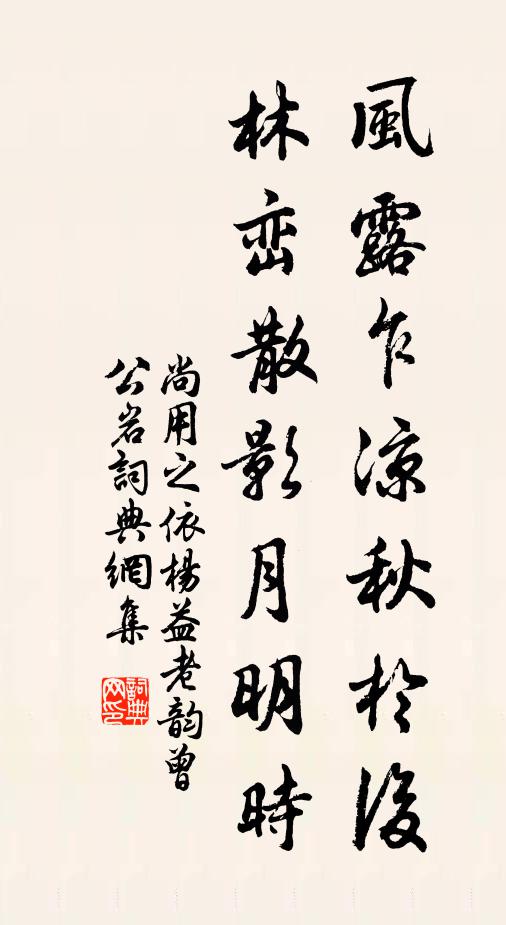 風露乍凉秋於後
林峦散影月明時
尚用之依楊益老韵曾
公岩詞典網集
詞典网印